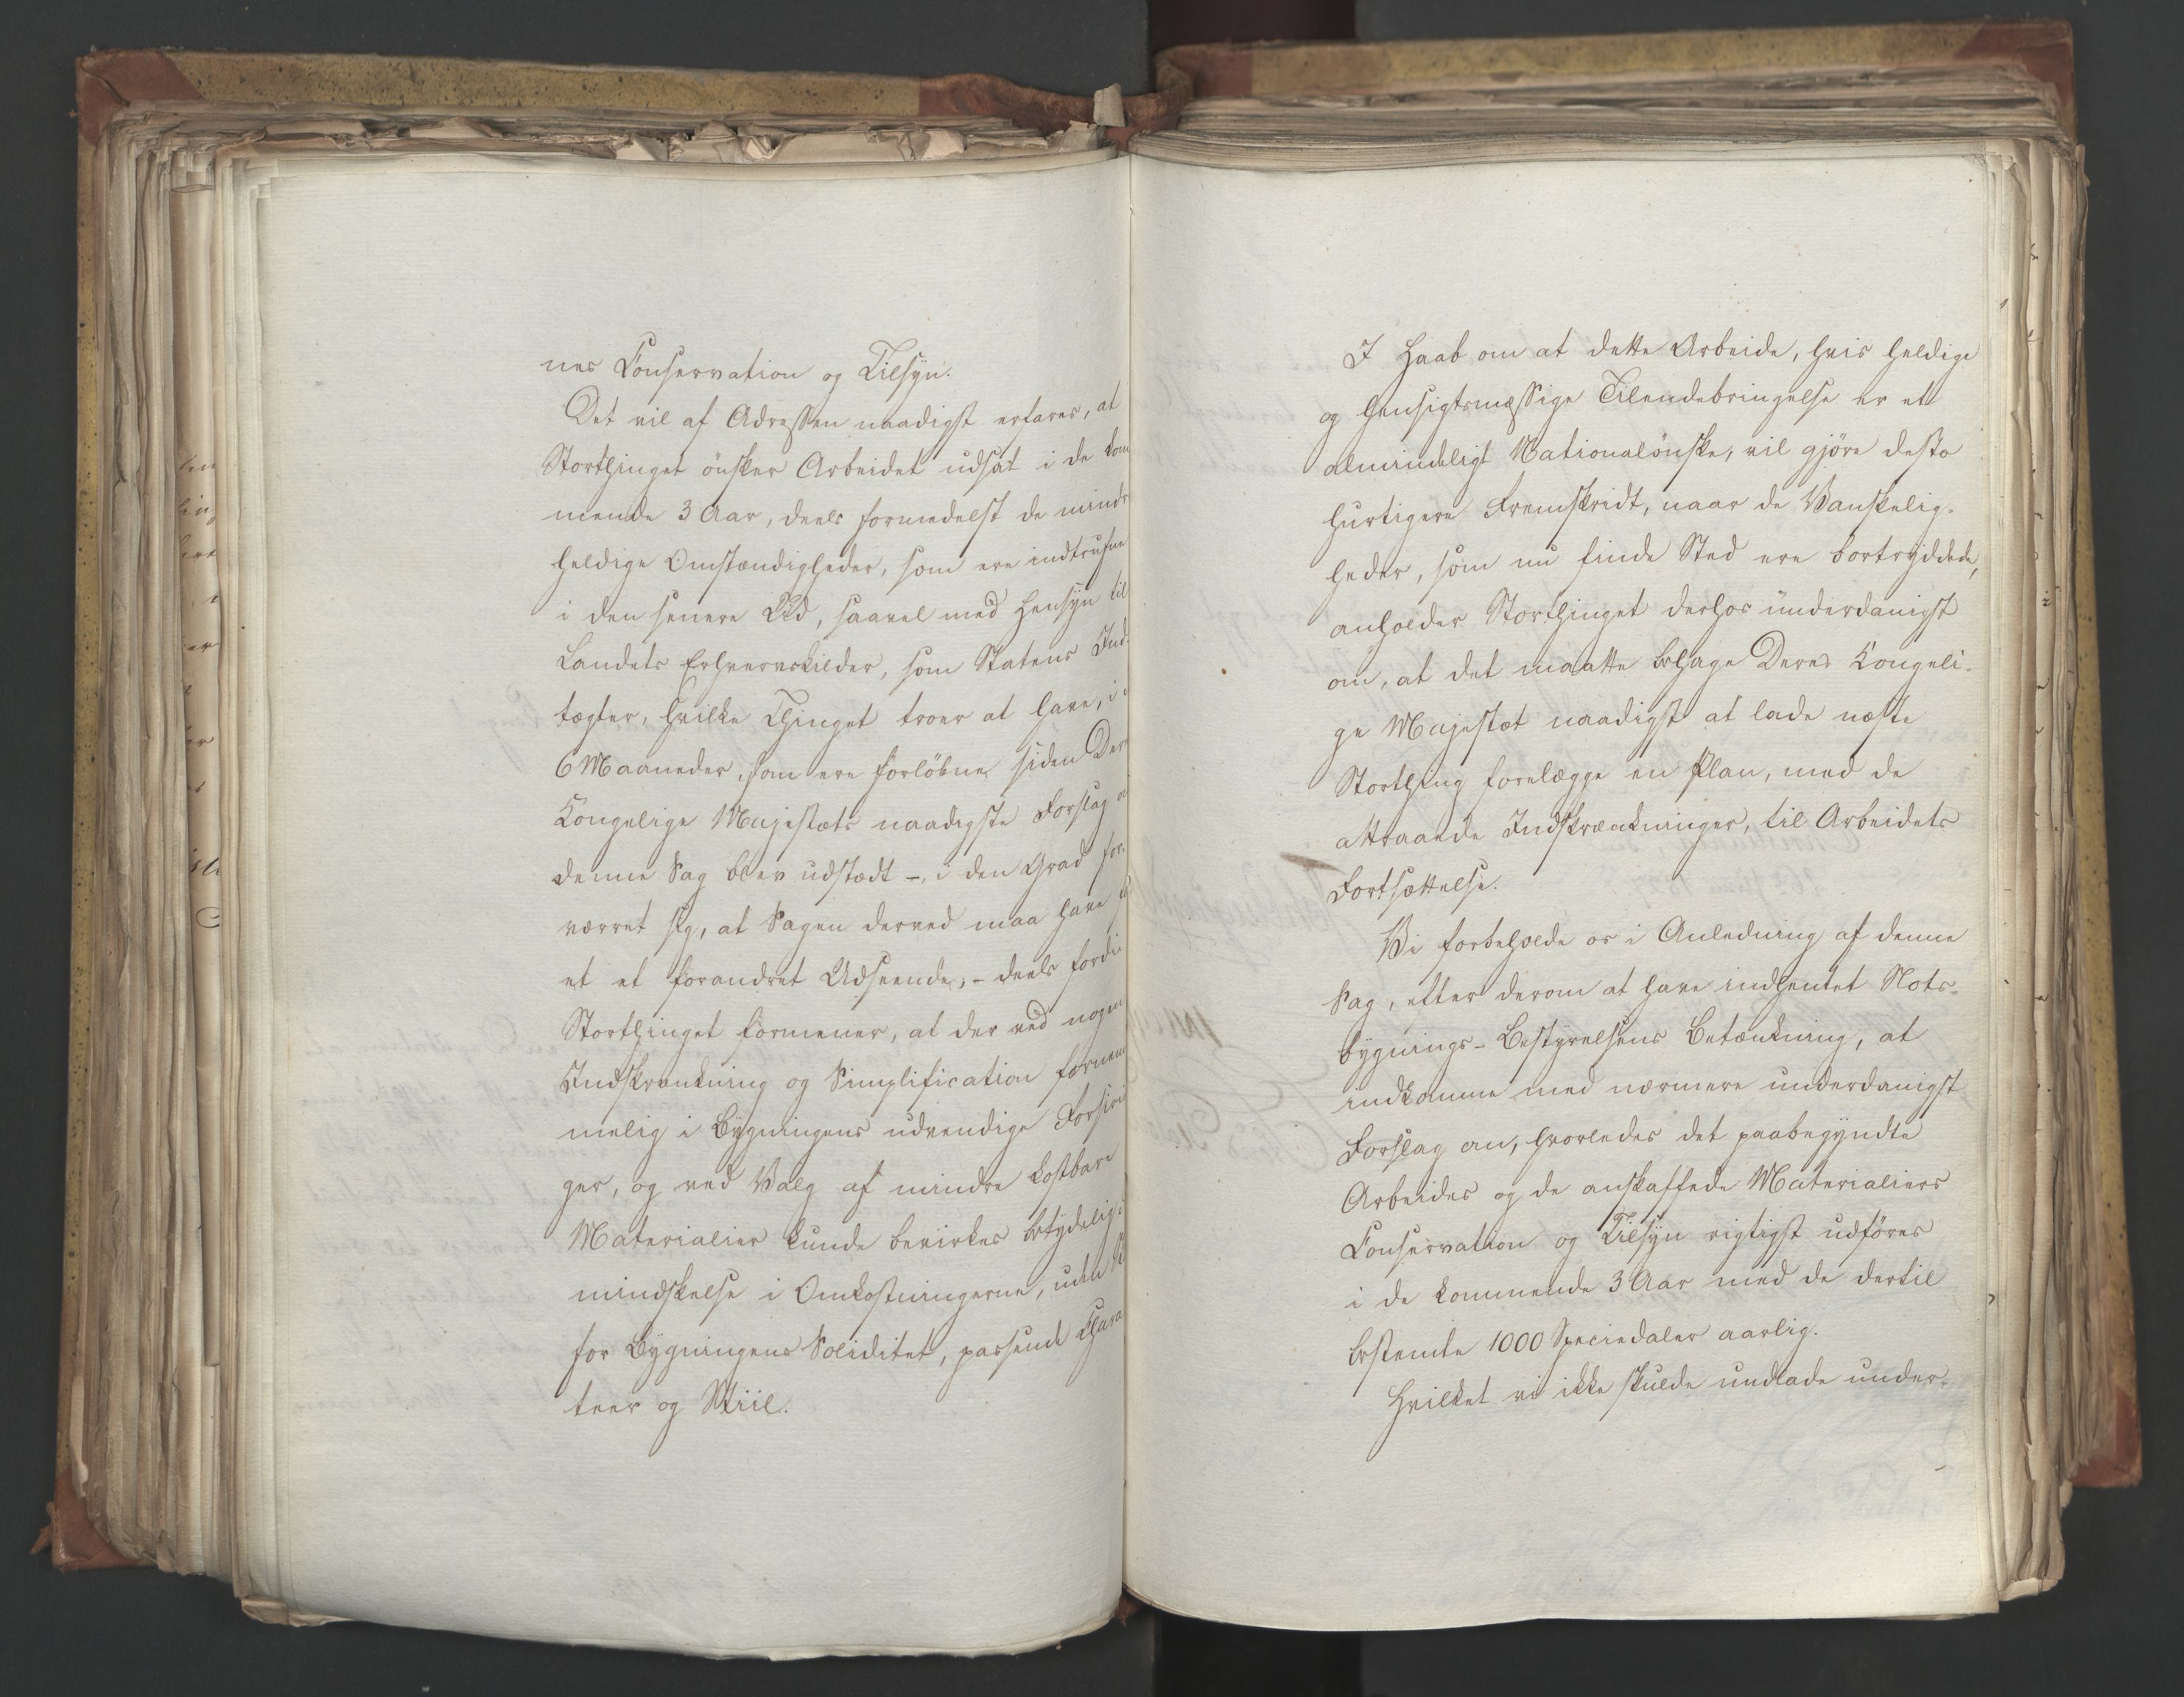 nes Conservation og Tilsyn.
Det vil af Adressen naadigst erfares, at
Storthinget ønsker Arbeidet udsat i de kom
mende 3 Aar, deels formedelst de mindr
heldige Omstændigheder, som ere indtrufne
i den senere Tid, saavel med Hensyn til
Landets Erhvervskilder, som Statens Ind-
tægter, hvilke Thinget troer at have, i
6 Maaneder, som ere forløbne siden Der
Kongelige Majestæts naadigste Forslag o
denne Sag blev udstædt -, i den Grad for-
værret sig, at Sagen derved maa have f
et et forandret Udseende, - deels fordi
Storthinget formener, at der ved nogen
Indskrænkning og Simplification fornem
melig i Bygningens udvendige Forsiri
ger, og ved Valg af mindre kostbare
Materialier kunde bevirkes betydelig
mindskelse i Omkostningerne, uden
for Bygningens Soliditet, passende Chara
teer og Stiil.
I Haab om at dette Arbeide, hvis heldige
og hensigtsmæssige Tilendebringelse er et
almindeligt Nationalønske, vil gjøre desto
hurtigere Fremskridt, naar de Vanskelig-
heder, som nu finde Sted ere bortryddede,
anholder Storthinget derhos underdanigst
om, at det maatte behage Deres Kongeli-
ge Majestæt naadigst at lade næste
Storthing forelægge en Plan, med de
attraaede Indskrænkninger, til Arbeidets
Fortsættelse.
Vi forbeholde os i Anledning af denne
Sag, efter derom at have indhentet Slots-
bygnings-Bestyrelsens Betænkning, at
indkomme med nærmere underdanigst
Forslag om, hvorledes det paabegyndte
Arbeides og de anskaffede Materialiers
Conservation og Tilsyn rigtigst udføres
i de kommende 3 Aar med de dertil
bestemte 1000 Speciedaler aarlig.
Hvilket vi ikke skulde undlade under-